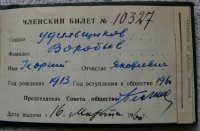 ЧЛЕНСКИЙ БИЛЕТ № 10327
Секция удильщиков
Фамилия Воробьев
Имя Георгий Отчество Яковлевич
Год рождения 1913 Год вступления в общество 196
Председатель Совета общества
Дата выдачи „16" Марта 196